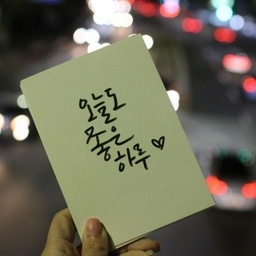 오늘도
좋은
하루♡